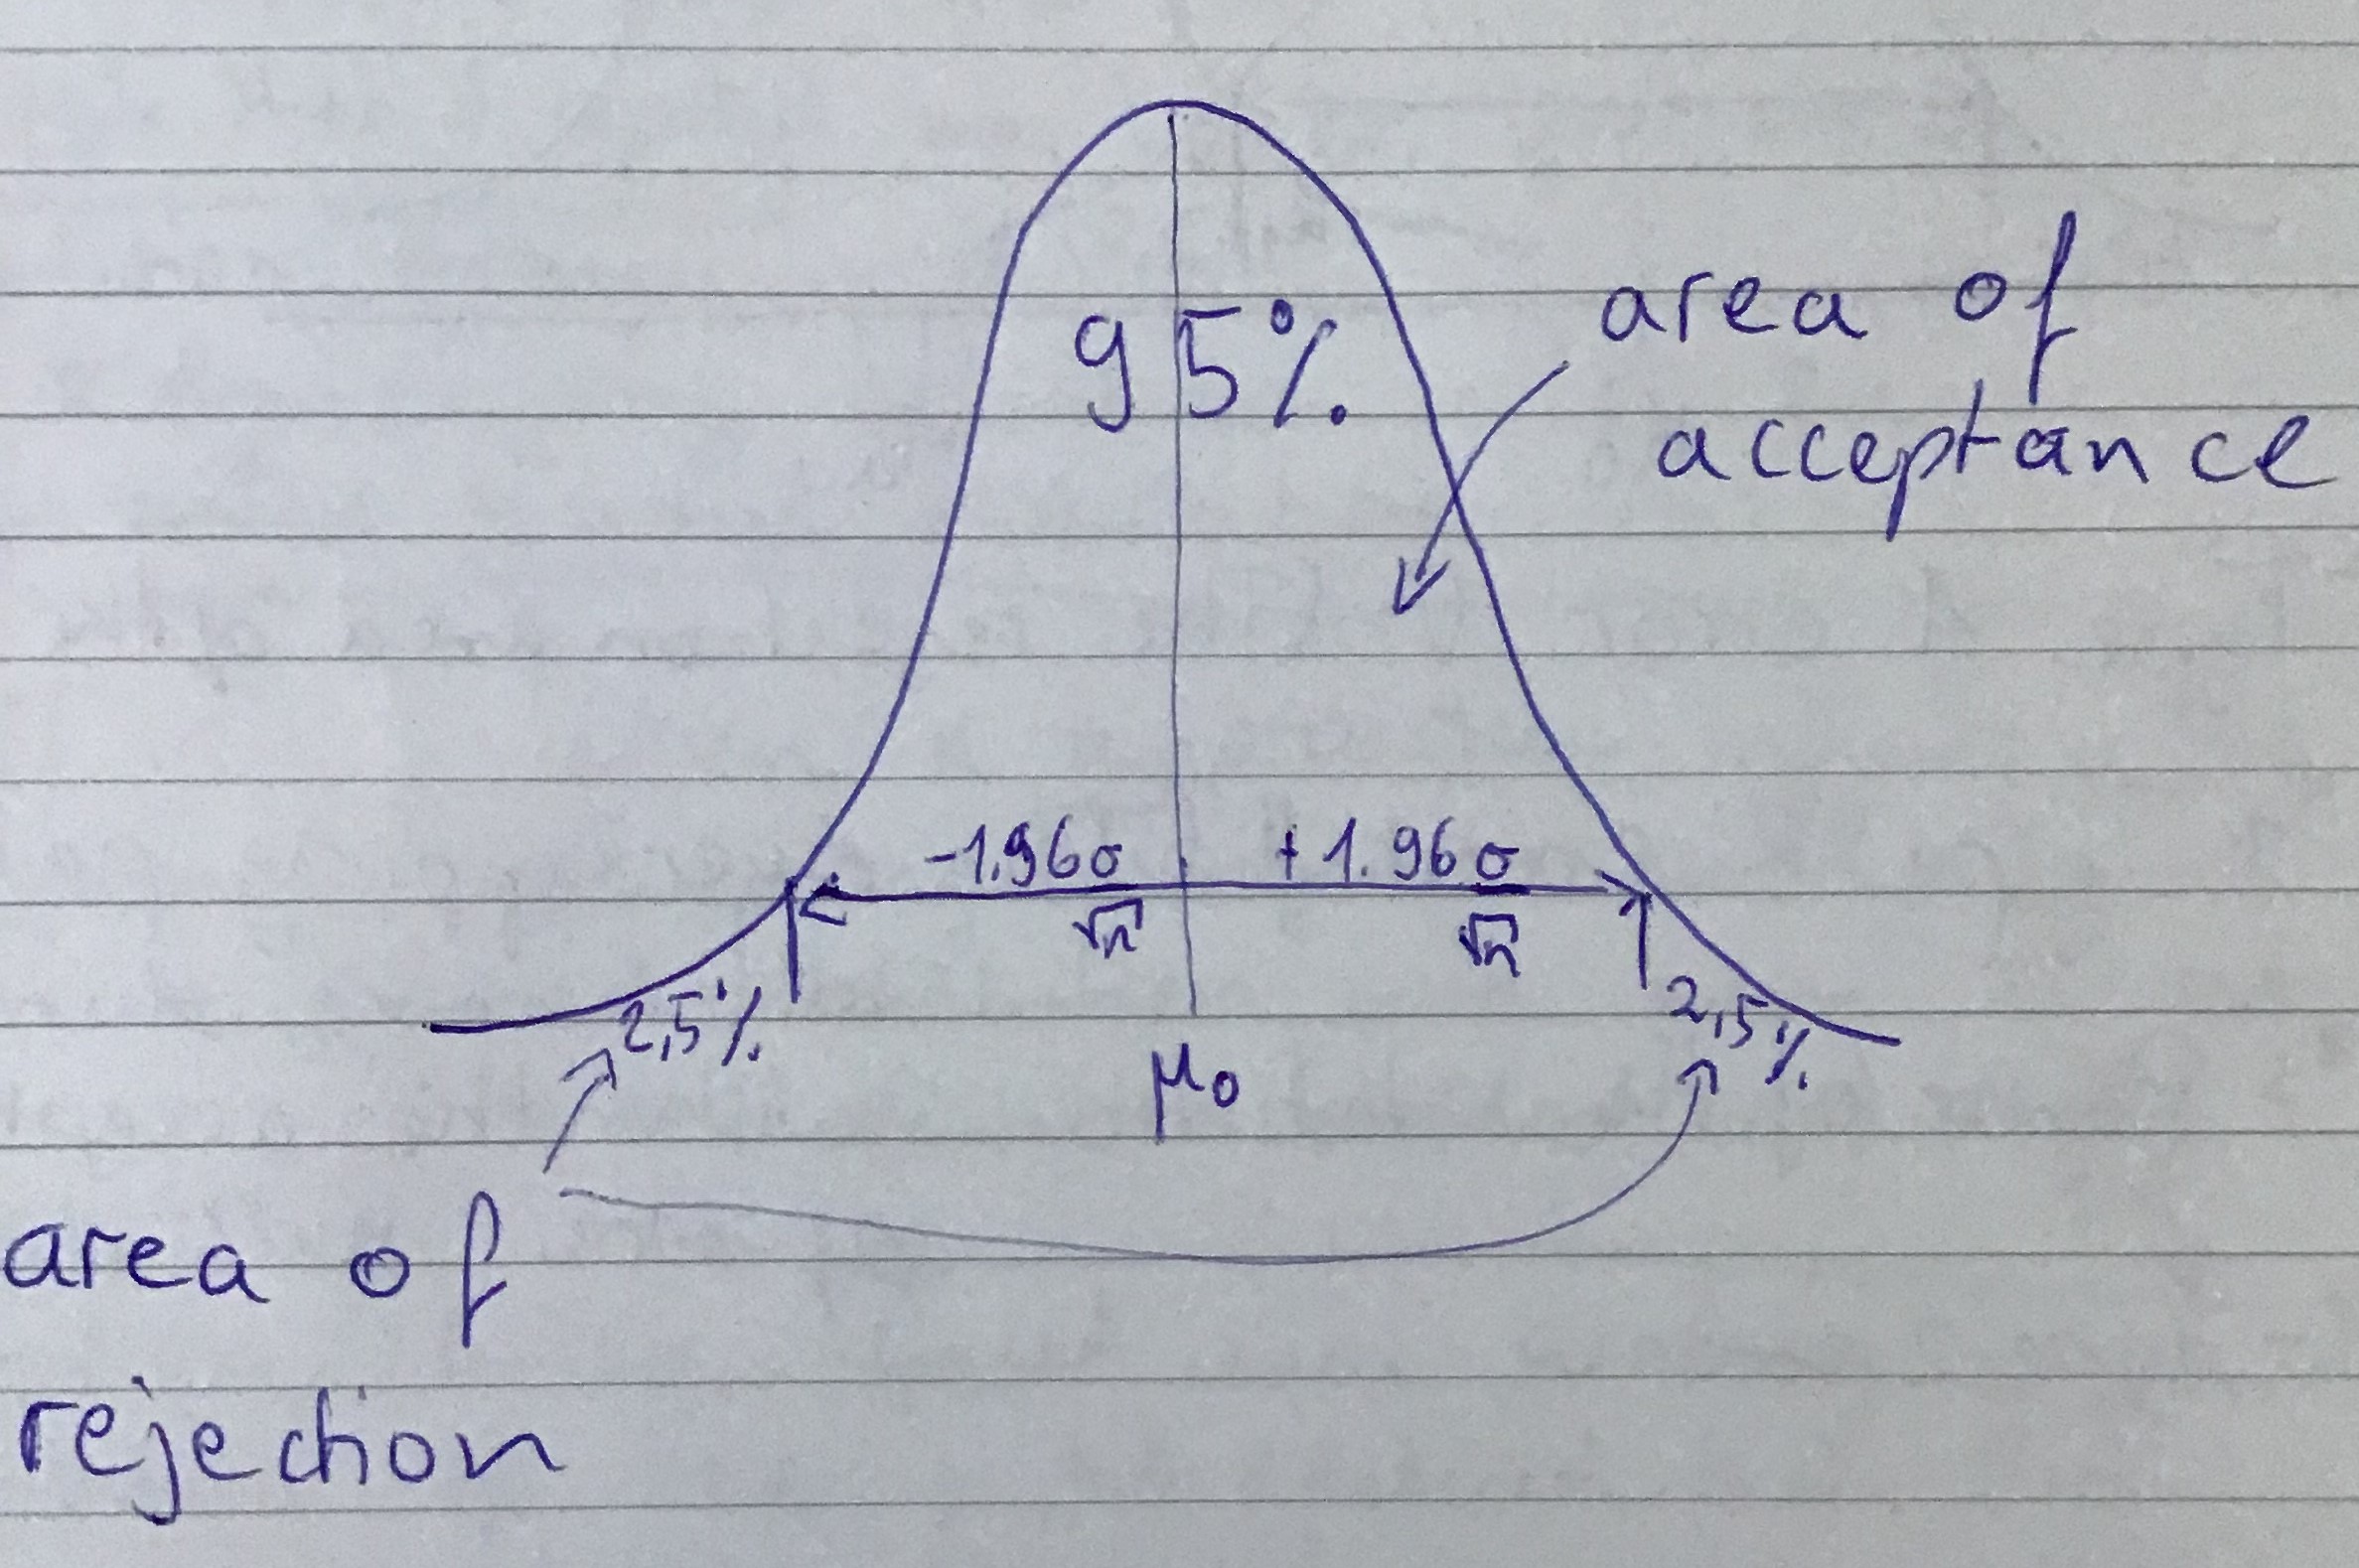 95%
area of
acceptance
-1.96σ/√n +1.96σ/√n
2,5% 2,5%
μ₀
area of
rejection